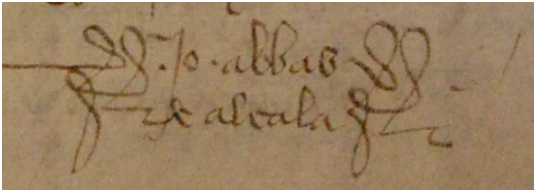 .Jo. abbas
de alcala